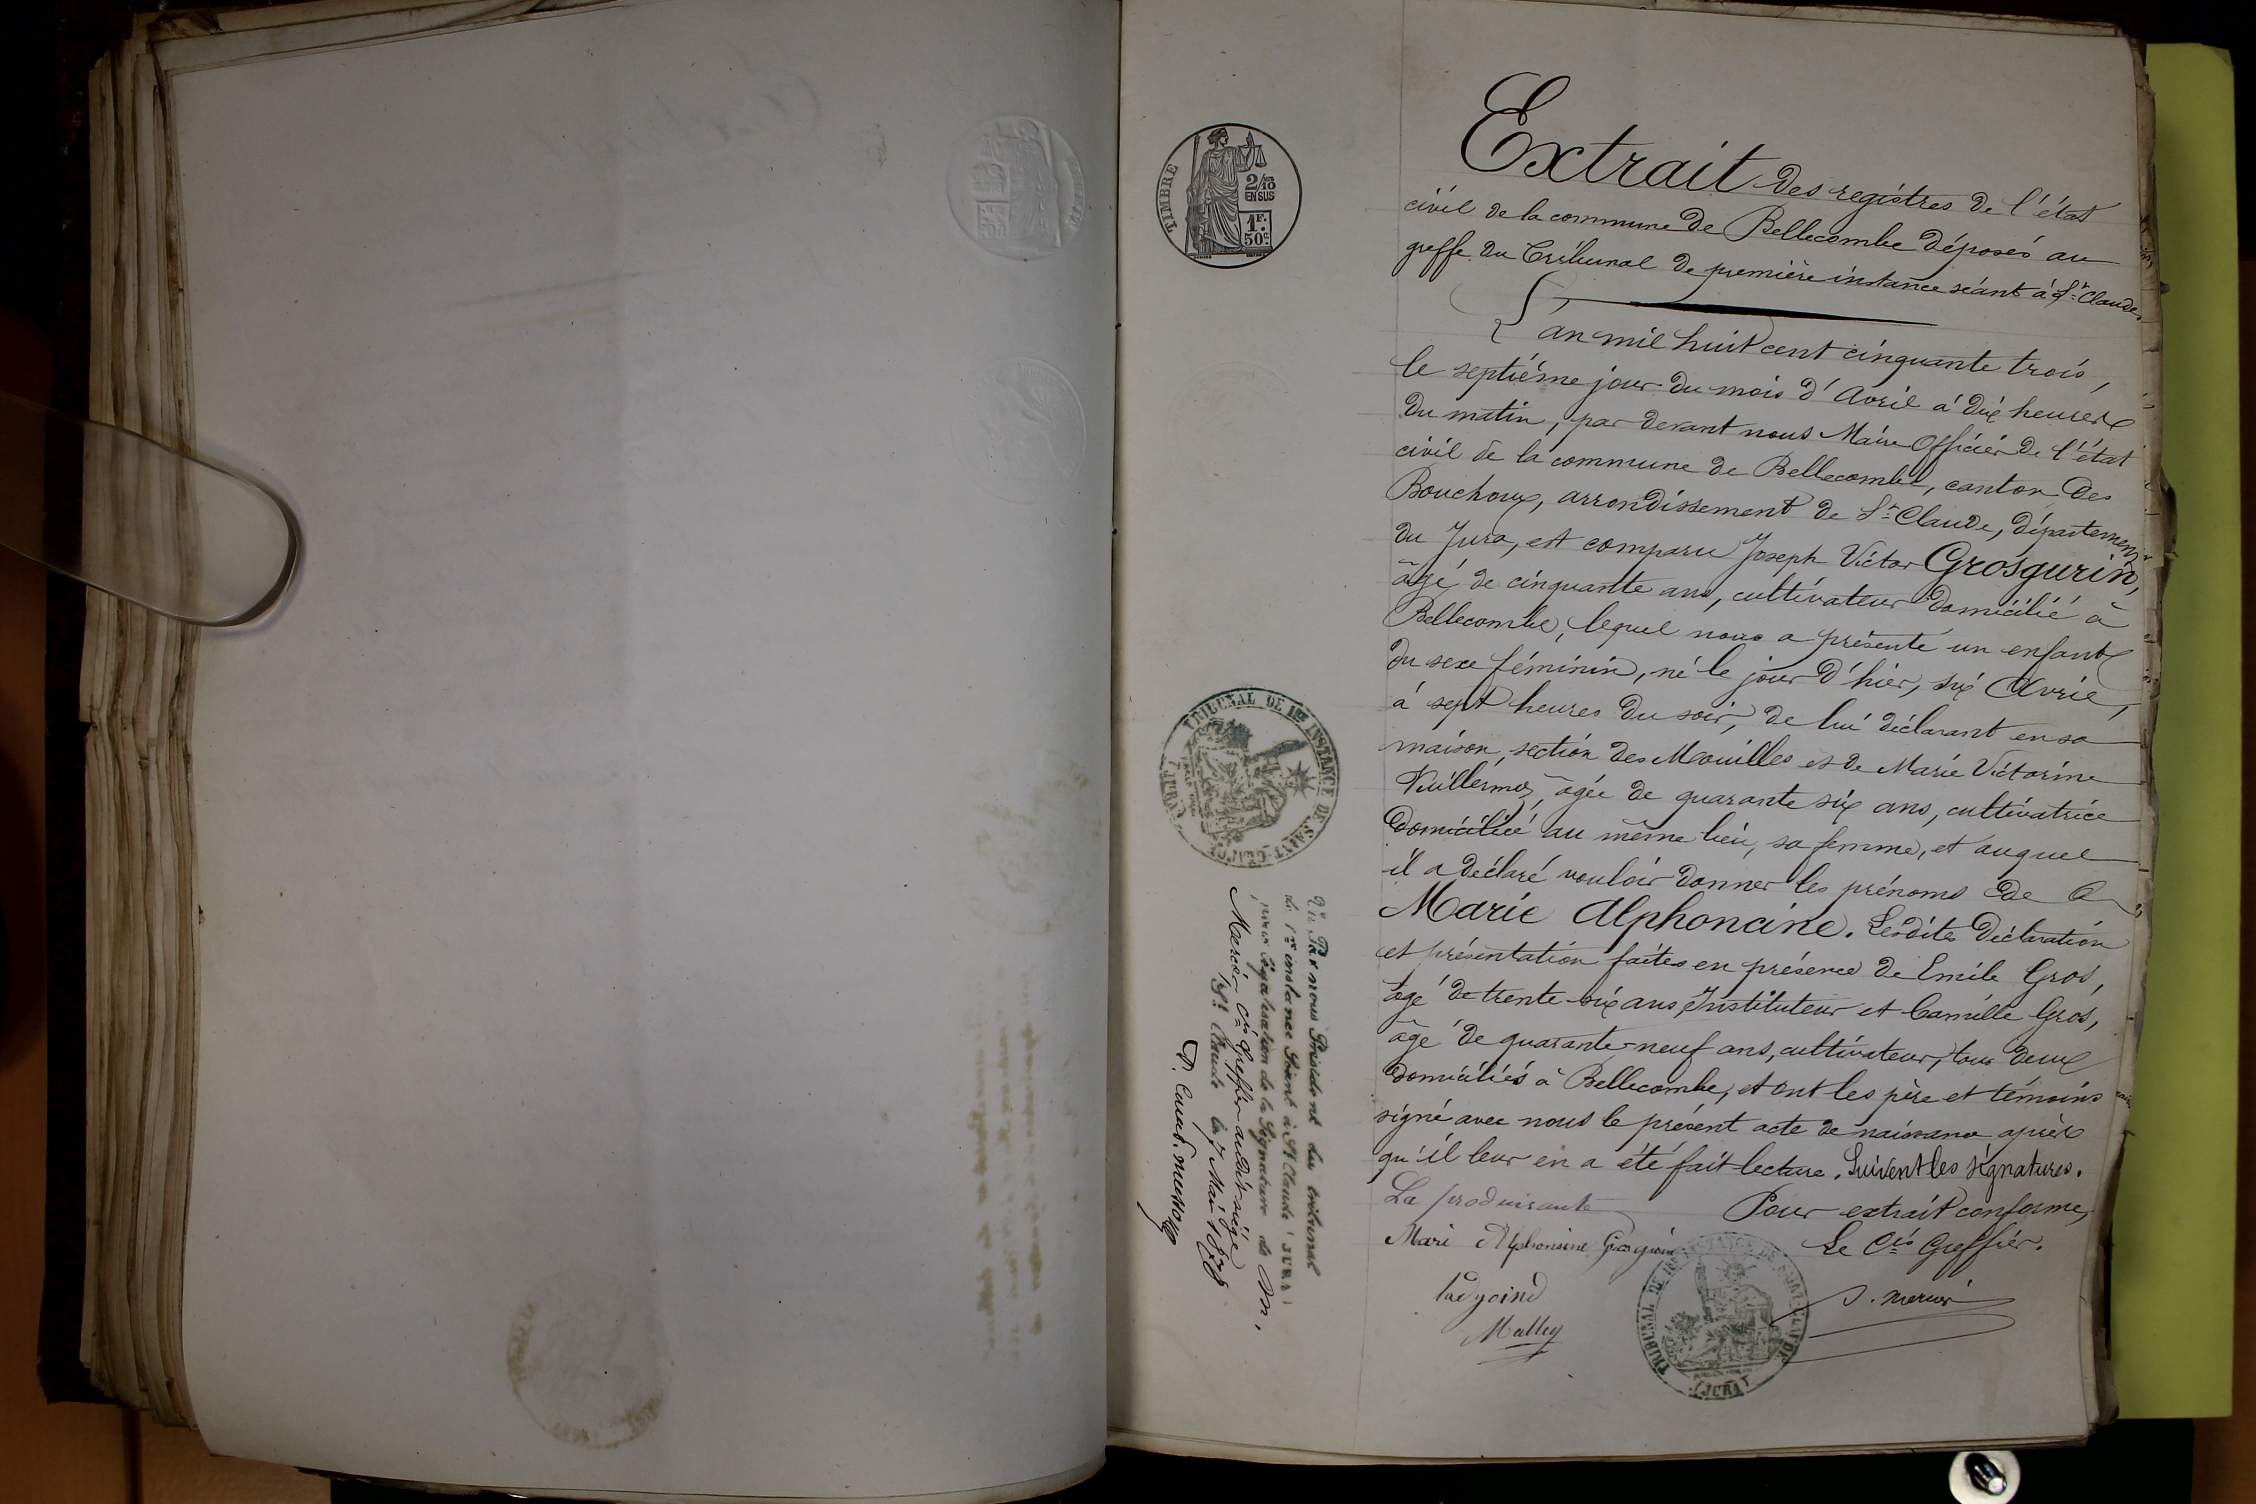 Extrait des registres de l'état
civil de la commune de Bellecombe déposés au
greffe du Tribunal de première instance séant à St Claude.
L'an mil huit cent cinquante trois,
le septième jour du mois d'Avril à dix heures
du matin, par devant nous Maire Officier de l'état
civil de la commune de Bellecombe, canton des
Bouchoux, arrondissement de St Claude, département
du Jura, est comparu Joseph Victor Grosgurin,
âgé de cinquante ans, cultivateur domicilié à
Bellecombe, lequel nous a présenté un enfant
du sexe féminin, né le jour d'hier, six Avril,
à sept heures du soir, de lui déclarant en sa
maison, section des Mouilles et de Marie Victorine
Vuillermoz, âgée de quarante six ans, cultivatrice
domiciliée au même lieu, sa femme, et auquel
il a déclaré vouloir donner les prénoms de
Marie Alphoncine. Lesdites déclaration
et présentation faites en présence de Emile Gros,
âgé de trente-six ans, Instituteur et Camille Gros,
âgé de quarante-neuf ans, cultivateur, tous deux
domiciliés à Bellecombe, et ont les père et témoins
signé avec nous le présent acte de naissance après
qu'il leur en a été fait lecture. Suivent les signatures.
La produisante
Pour extrait conforme,
Le Cis Greffier.
Mari Alphonsine Grosgurin
l'adjoind
Malley
J. Mercier
TIMBRE
2/10
EN SUS
1F.
50c.
TRIBUNAL DE 1RE INSTANCE DE SAINT-CLAUDE
(JURA)
Vu Par nous Président du tribunal
de 1re instance Séant à St Claude (JURA)
pour légalisation de la Signature de M.
Mercier Cis Greffier audit siège
St Claude le 7 Mai
TRIBUNAL DE 1RE INSTANCE DE SAINT-CLAUDE
(JURA)